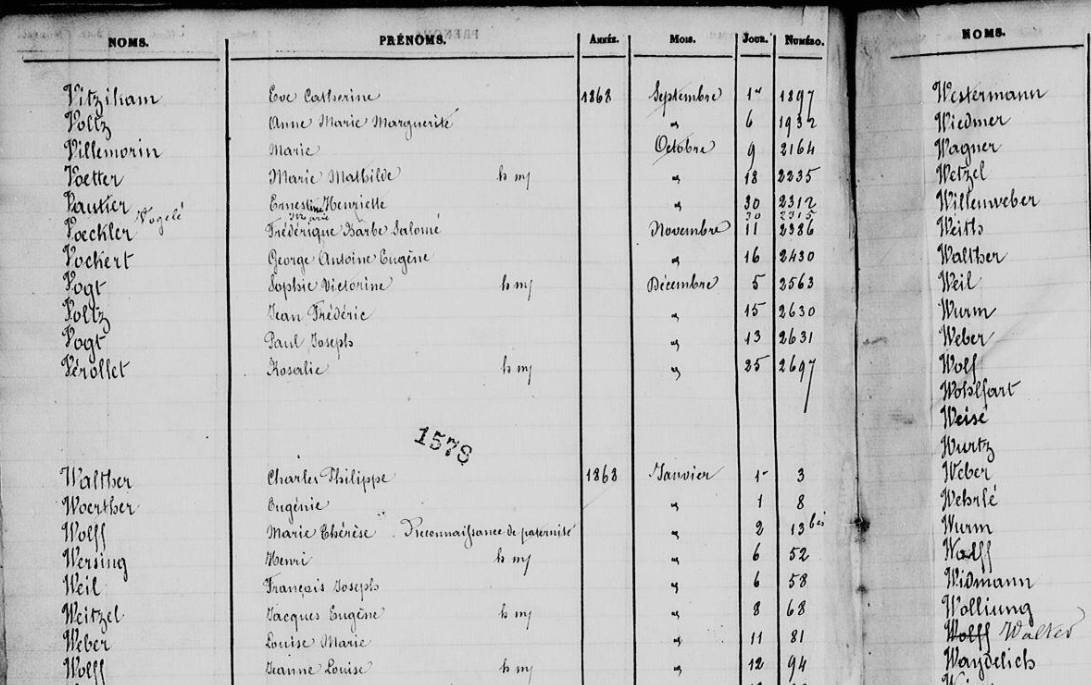 NOMS. PRÉNOMS. ANNÉE. MOIS. JOUR. NUMÉRO.
Vitziham Eve Catherine 1868 Septembre 1er 1897
Voltz Anne Marie Marguerite " 6 1932
Villemorin Marie Octobre 9 2164
Voetter Marie Mathilde h m " 18 2235
Vautier Ernestine Henriette " 30 2312
Vogelé Marie 30 2315
Voeckler Frédérique Barbe Salomé Novembre 11 2386
Vockert George Antoine Eugène " 16 2430
Vogt Sophie Victorine h m Décembre 5 2563
Voltz Jean Frédéric " 15 2630
Vogt Paul Joseph " 13 2631
Vérollet Rosalie h m " 25 2697
1578
Walther Charles Philippe 1868 Janvier 1er 3
Woerther Eugénie " 1 8
Wolff Marie Thérèse Reconnaissance de paternité " 2 13 bis
Wersing Henri h m " 6 52
Weil François Joseph " 6 58
Weitzel Jacques Eugène h m " 8 68
Weber Louise Marie " 11 81
Wolff Jeanne Louise h m " 12 94
NOMS.
Westermann
Wiedmer
Wagner
Wetzel
Willenweber
Weith
Walther
Weil
Wurm
Weber
Wolf
Wohlfart
Weisé
Wurtz
Weber
Wehrlé
Wurm
Wolff
Widmann
Wolljung
Wolff Walter
Waydelich